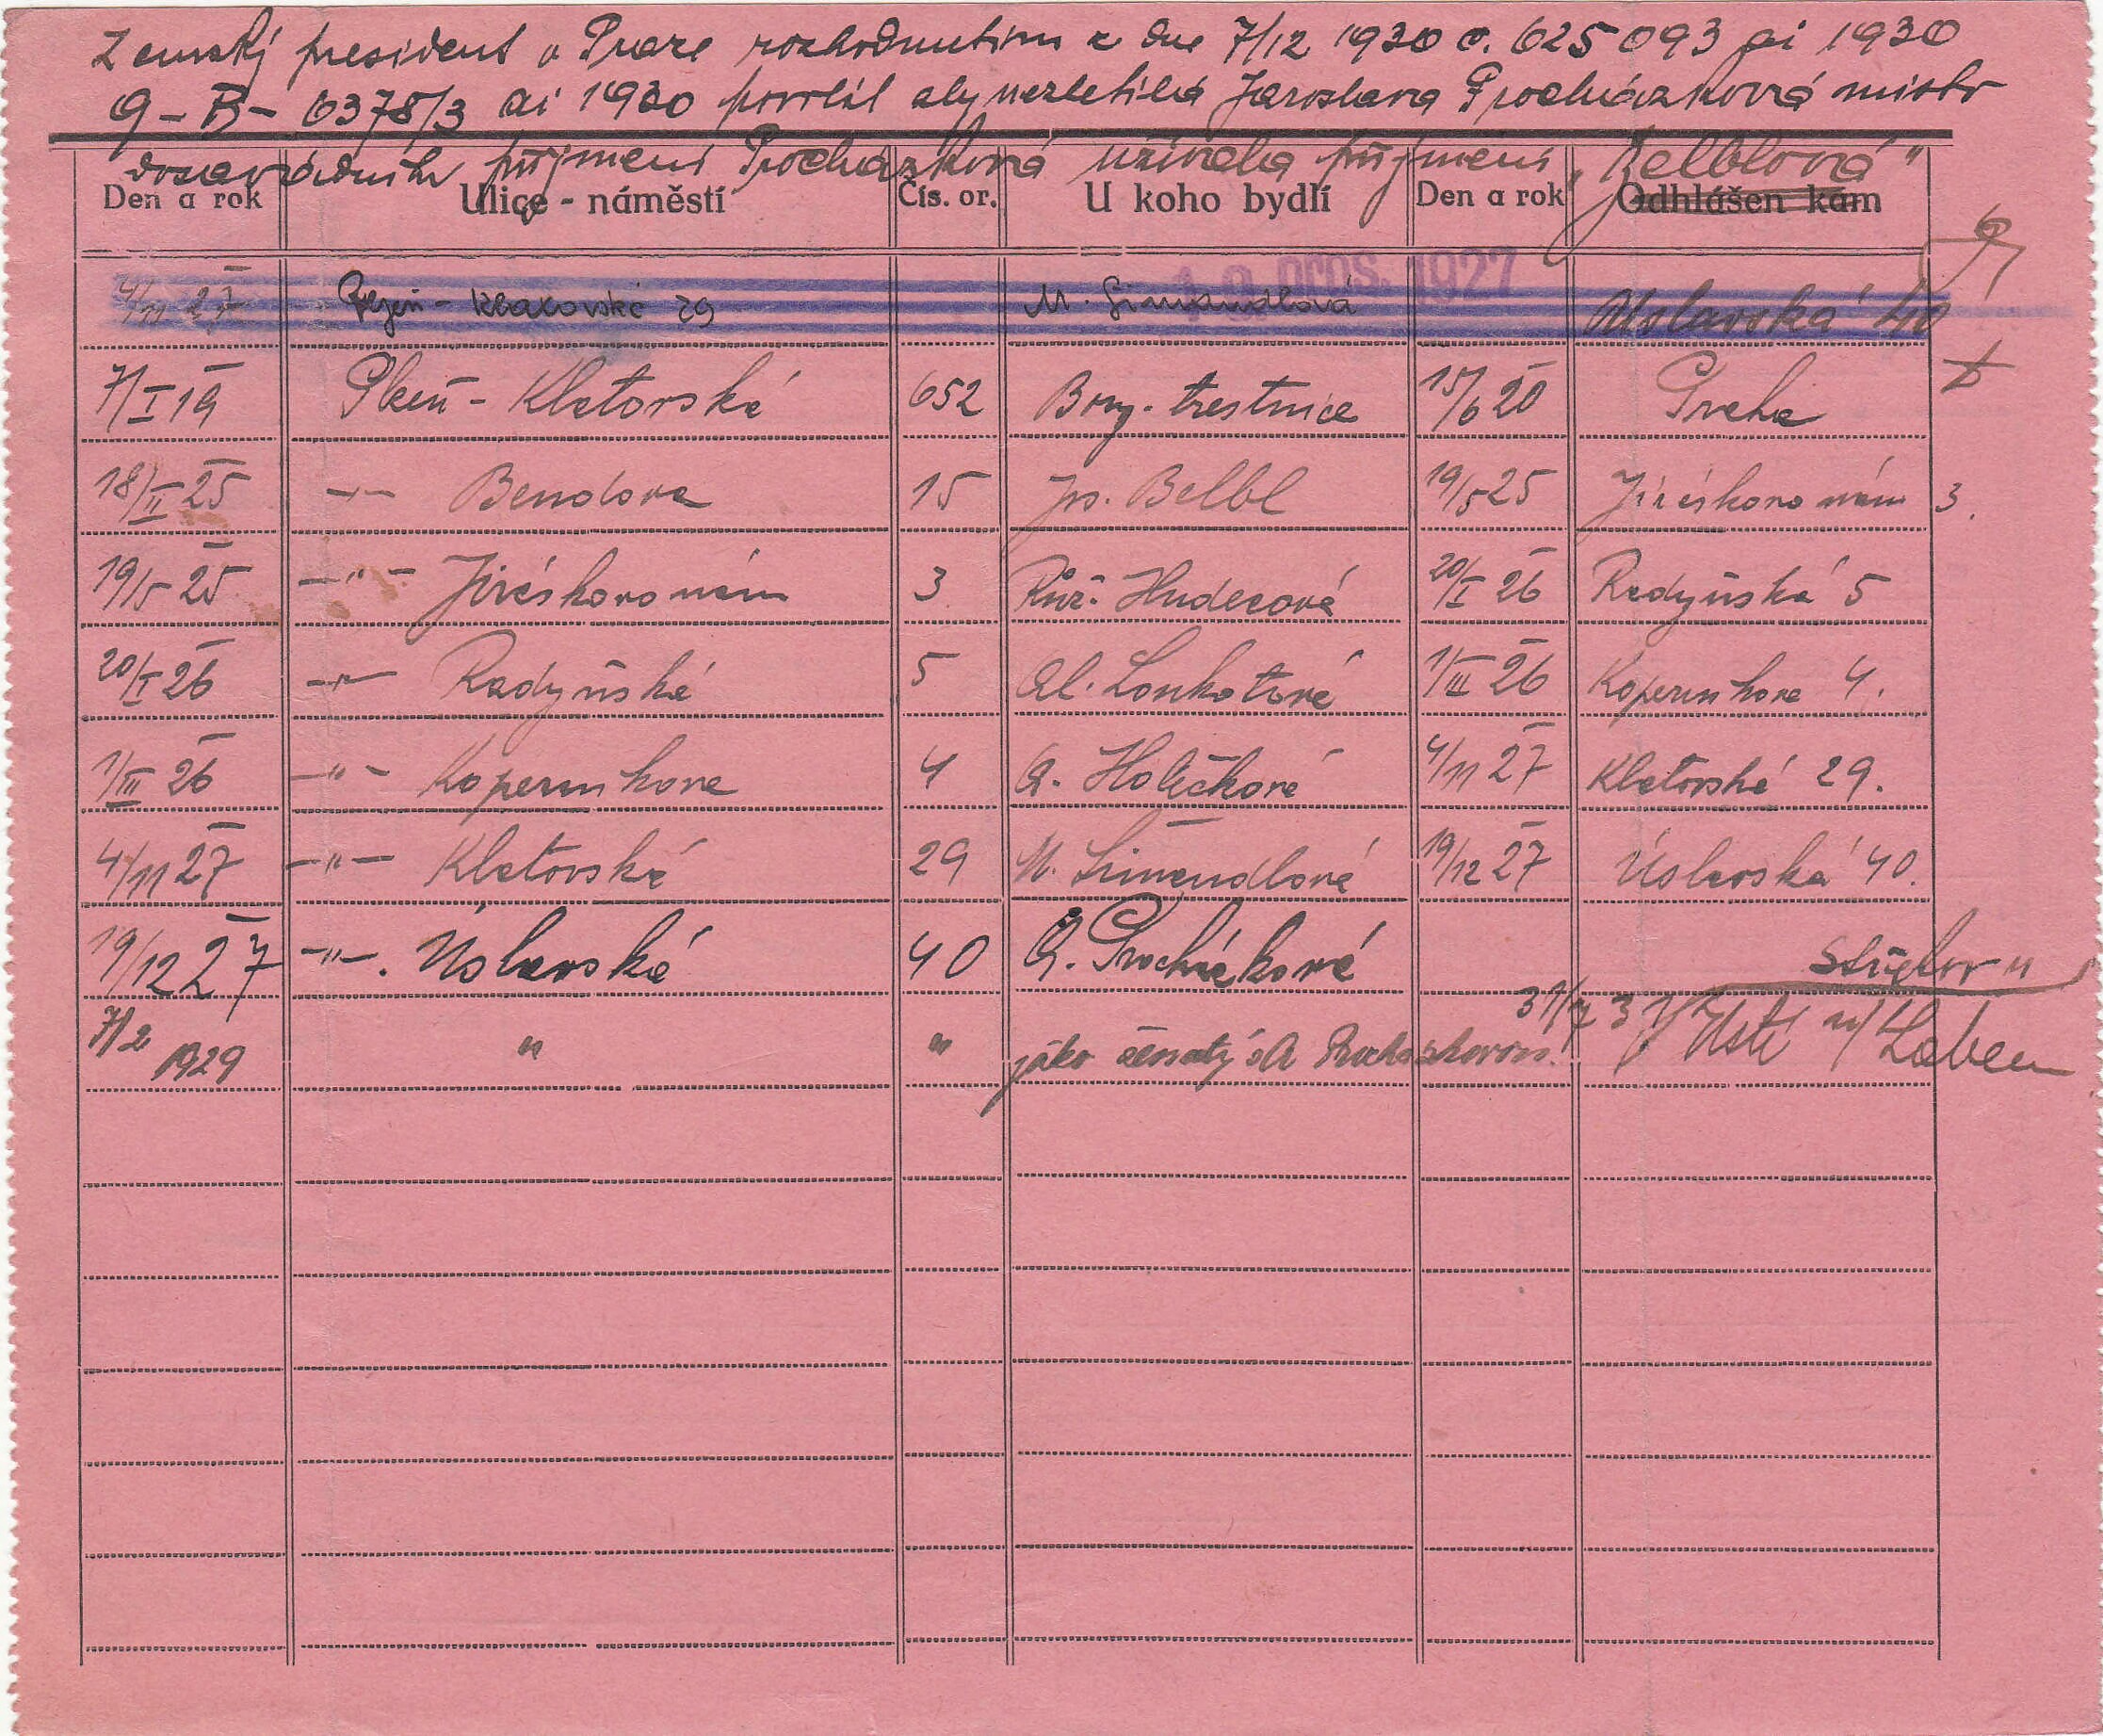 Zemský president v Praze rozhodnutím z dne 7/12 1930 č. 625093 ai 1930
9-B- 6378/3 ai 1930 povolil aby nezletilá Jaroslava Procházková místo
dosavadního příjmení Procházková užívala příjmení „Belblová"
Den a rok Ulice - náměstí Čís. or. U koho bydlí Den a rok Odhlášen kam
19. pros. 1927
4/11 27 Plzeň - Klatovská 29 M. Simandlová Úslavská 40
7/I 19 Plzeň - Klatovská 652 Bory - trestnice 15/6 20 Praha
18/II 25 -"- Bendova 15 Jos. Belbl 19/5 25 Jiráskovo nám 3.
19/5 25 -"- Jiráskovo nám 3 Růž. Hudecová 20/I 26 Radyňská 5
20/I 26 -"- Radyňská 5 Al. Loukotová 1/III 26 Koperníkova 4.
1/III 26 -"- Koperníkova 4 A. Holečková 4/11 27 Klatovská 29.
4/11 27 -"- Klatovská 29 M. Šimandlová 19/12 27 Úslavská 40.
19/12 27 -"-. Úslavská 40 A. Procházková
7/2 1929 " " jako ženatý s A Procházkovou. 31/7 31 Ústí n/Labem